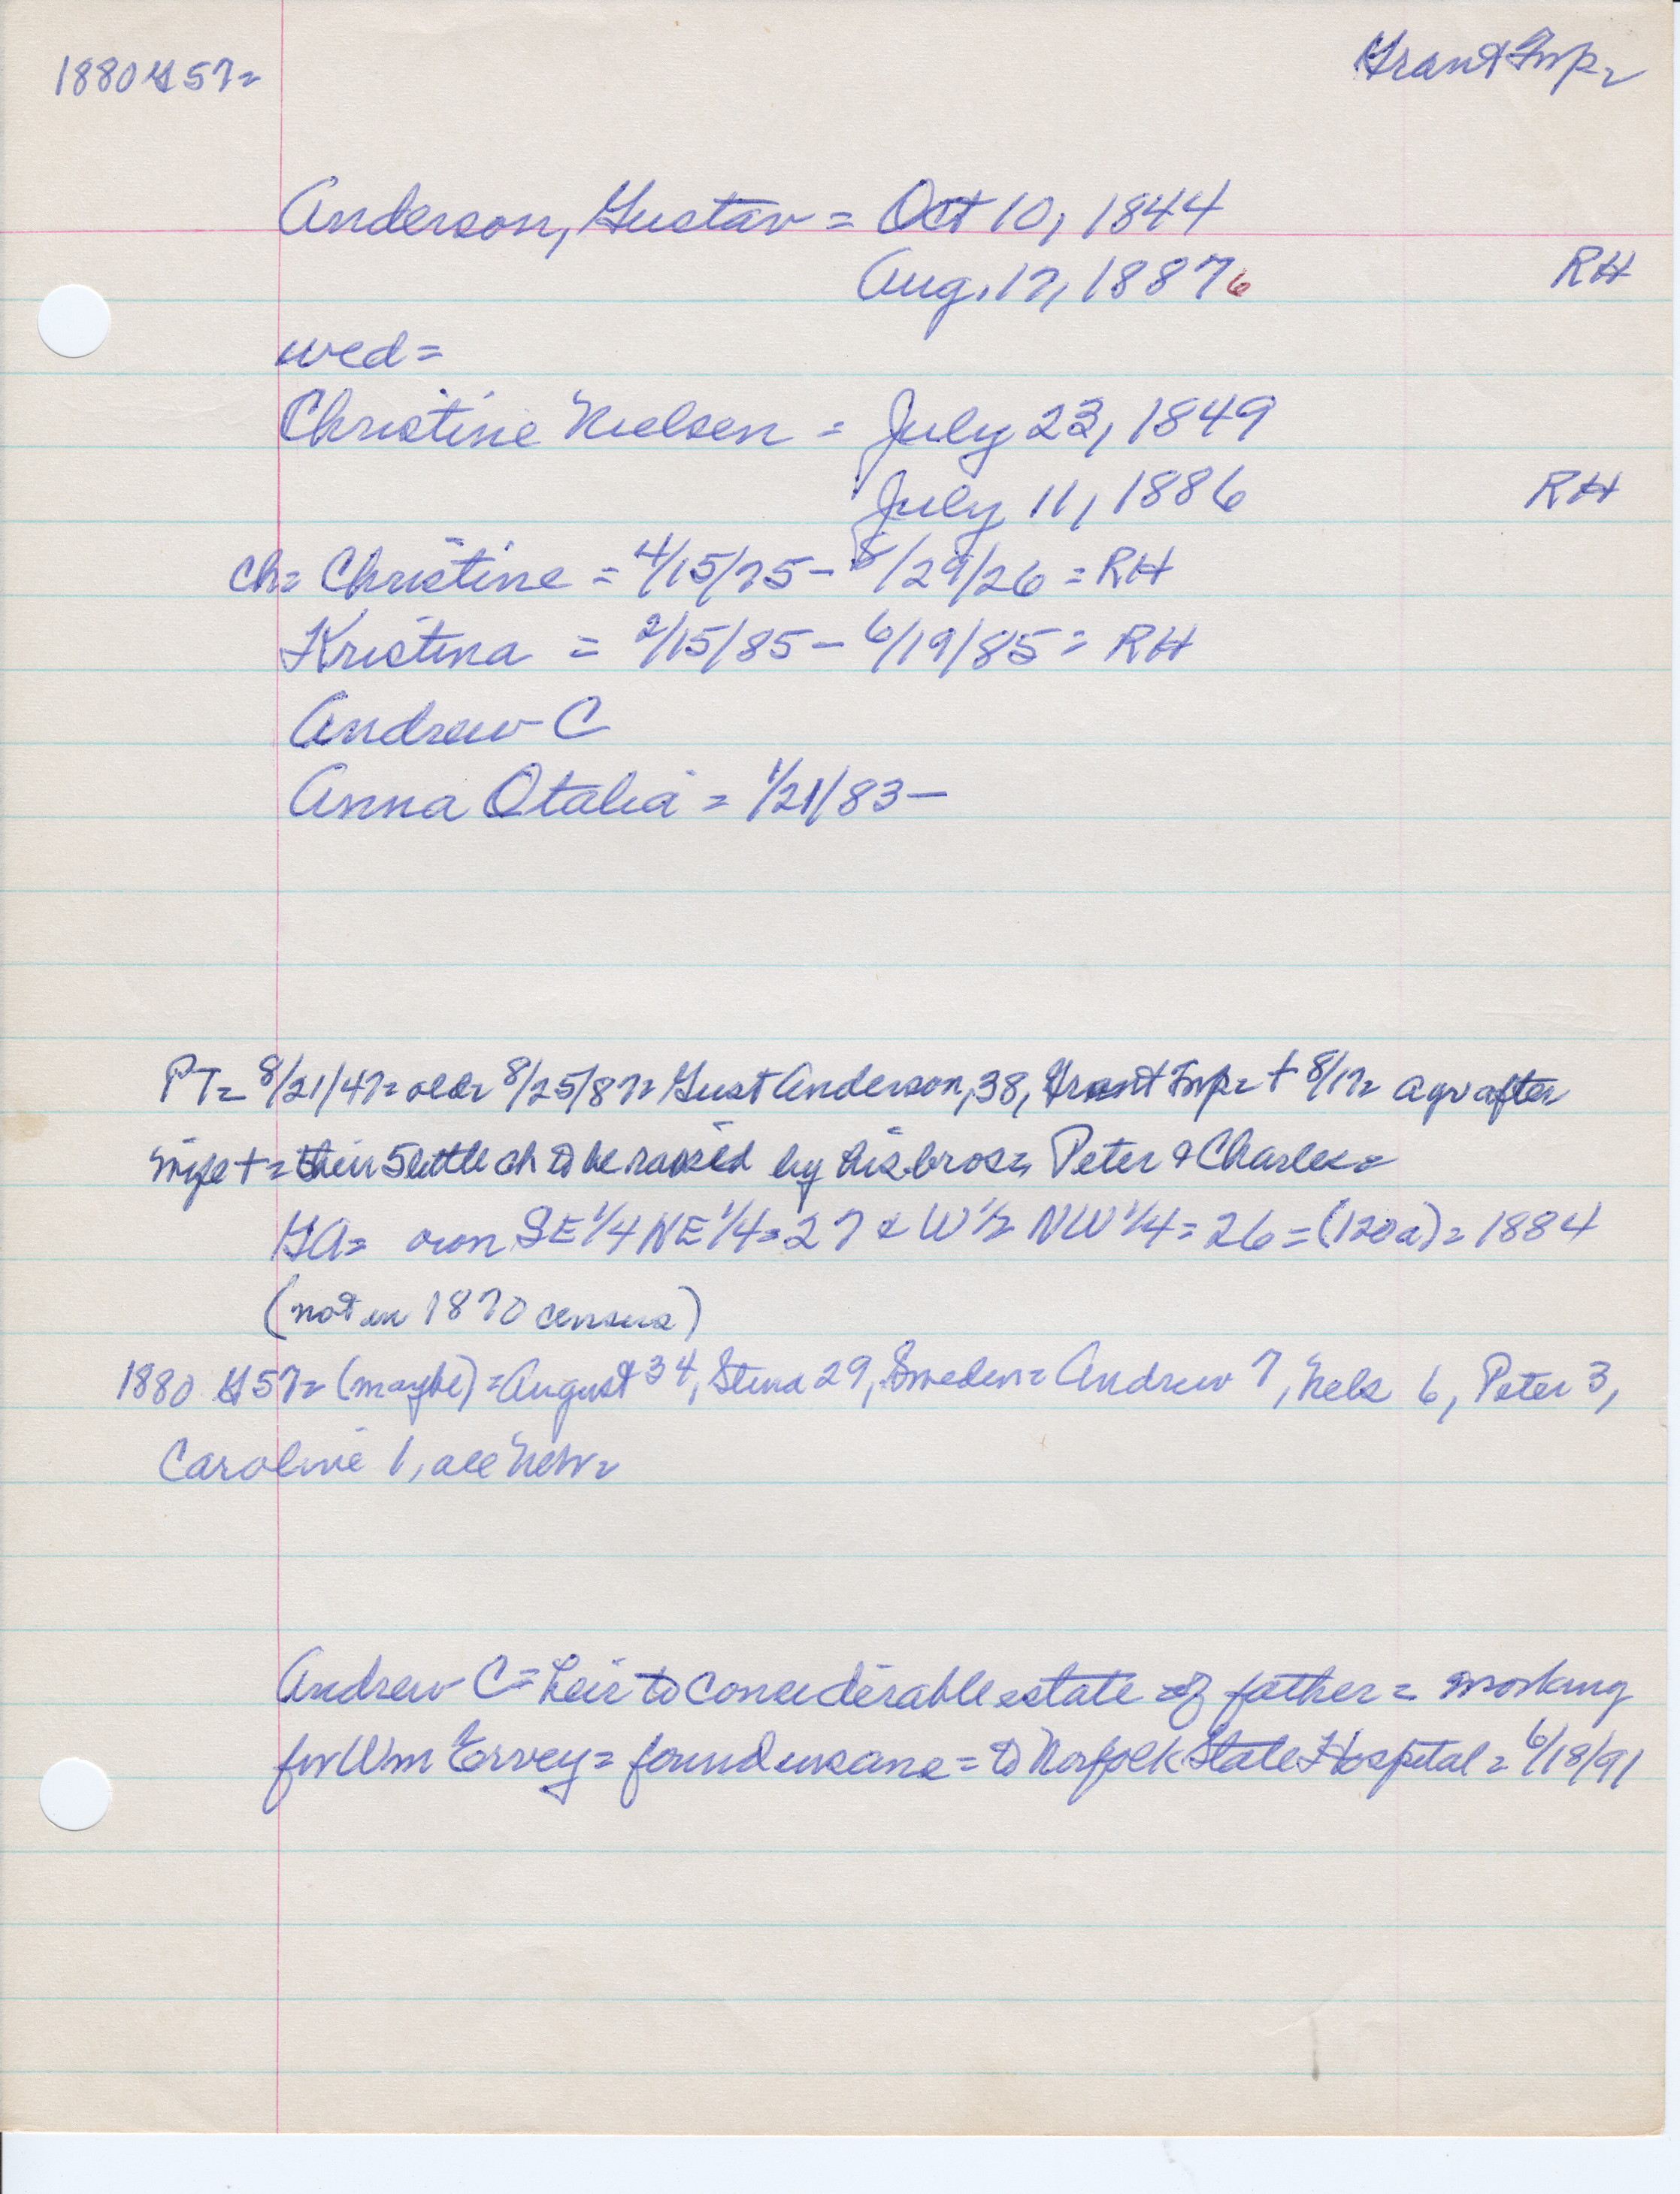 1880 G 57=
Grant Twp=
Anderson, Gustav = Oct 10, 1844
Aug. 17, 1887 6 RH
wed=
Christine Nielsen = July 23, 1849
July 11, 1886 RH
ch= Christine = 4/15/75 - 8/29/26 = RH
Kristina = 2/15/85 - 6/19/85 = RH
Andrew C
Anna Otalia = 1/21/83 -
PT= 8/21/47= 8/25/87= Gust Anderson, 38, Grant Twp= + 8/17= after
wife += their 5 little ch to be raised by his bros= Peter & Charles=
GA= own SE 1/4 NE 1/4=27 & W 1/2 NW 1/4=26=(120a)=1884
(not in 1870 census)
1880 G 57= (maybe) = August 34, Stina 29, Sweden= Andrew 7, Nels 6, Peter 3,
Caroline 1, all Neb=
Andrew C= heir to considerable estate of father = working
for Wm Ervey= found insane = to Norfolk State Hospital = 6/18/91